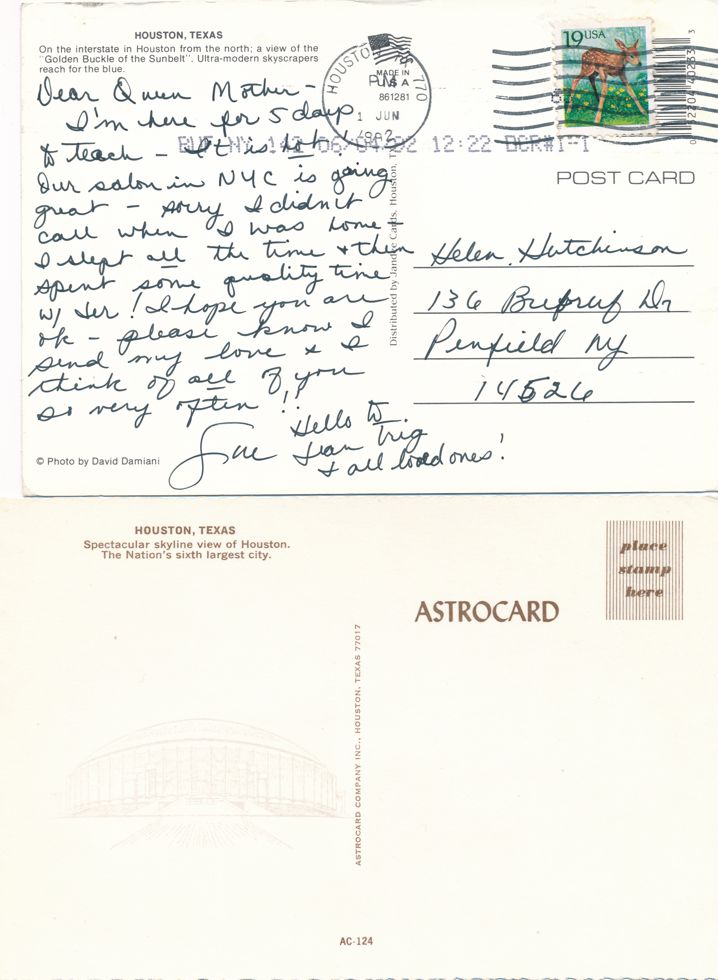 HOUSTON, TEXAS
On the interstate in Houston from the north; a view of the
"Golden Buckle of the Sunbelt". Ultra-modern skyscrapers
reach for the blue.
Dear Queen Mother -
I'm here for 5 days
to teach - It is hot!
Our salon in NYC is going
great - sorry I didn't
call when I was home -
I slept all the time & then
spent some quality time
w/ Jer! I hope you are
ok - please know I
send my love & I
think of all of you
so very often!!
Sue
Hello to
Jean Trig
& all loved ones!
© Photo by David Damiani
HOUSTON, TX 770
PM
1 JUN
1992
MADE IN
U S A
861281
12:22
Distributed by Jandee Cards, Houston,
19 USA
POST CARD
Helen Hutchinson
136 Dr
Penfield NY
14526
HOUSTON, TEXAS
Spectacular skyline view of Houston.
The Nation's sixth largest city.
place
stamp
here
ASTROCARD
ASTROCARD COMPANY INC., HOUSTON, TEXAS 77017
AC-124